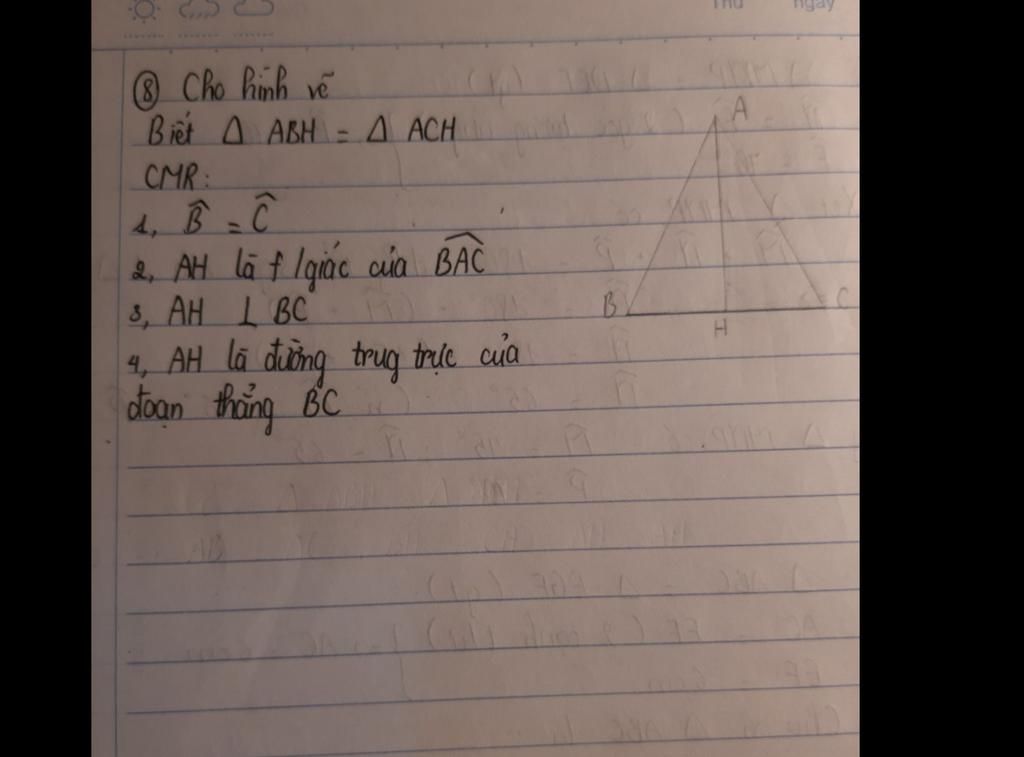 Thứ ngày
⑧ Cho hình vẽ
Biết Δ ABH = Δ ACH
CMR:
1, B̂ = Ĉ
2, AH là f/giác của BAC
3, AH ⊥ BC
4, AH là đường trug trực của
đoạn thẳng BC
A
B
C
H